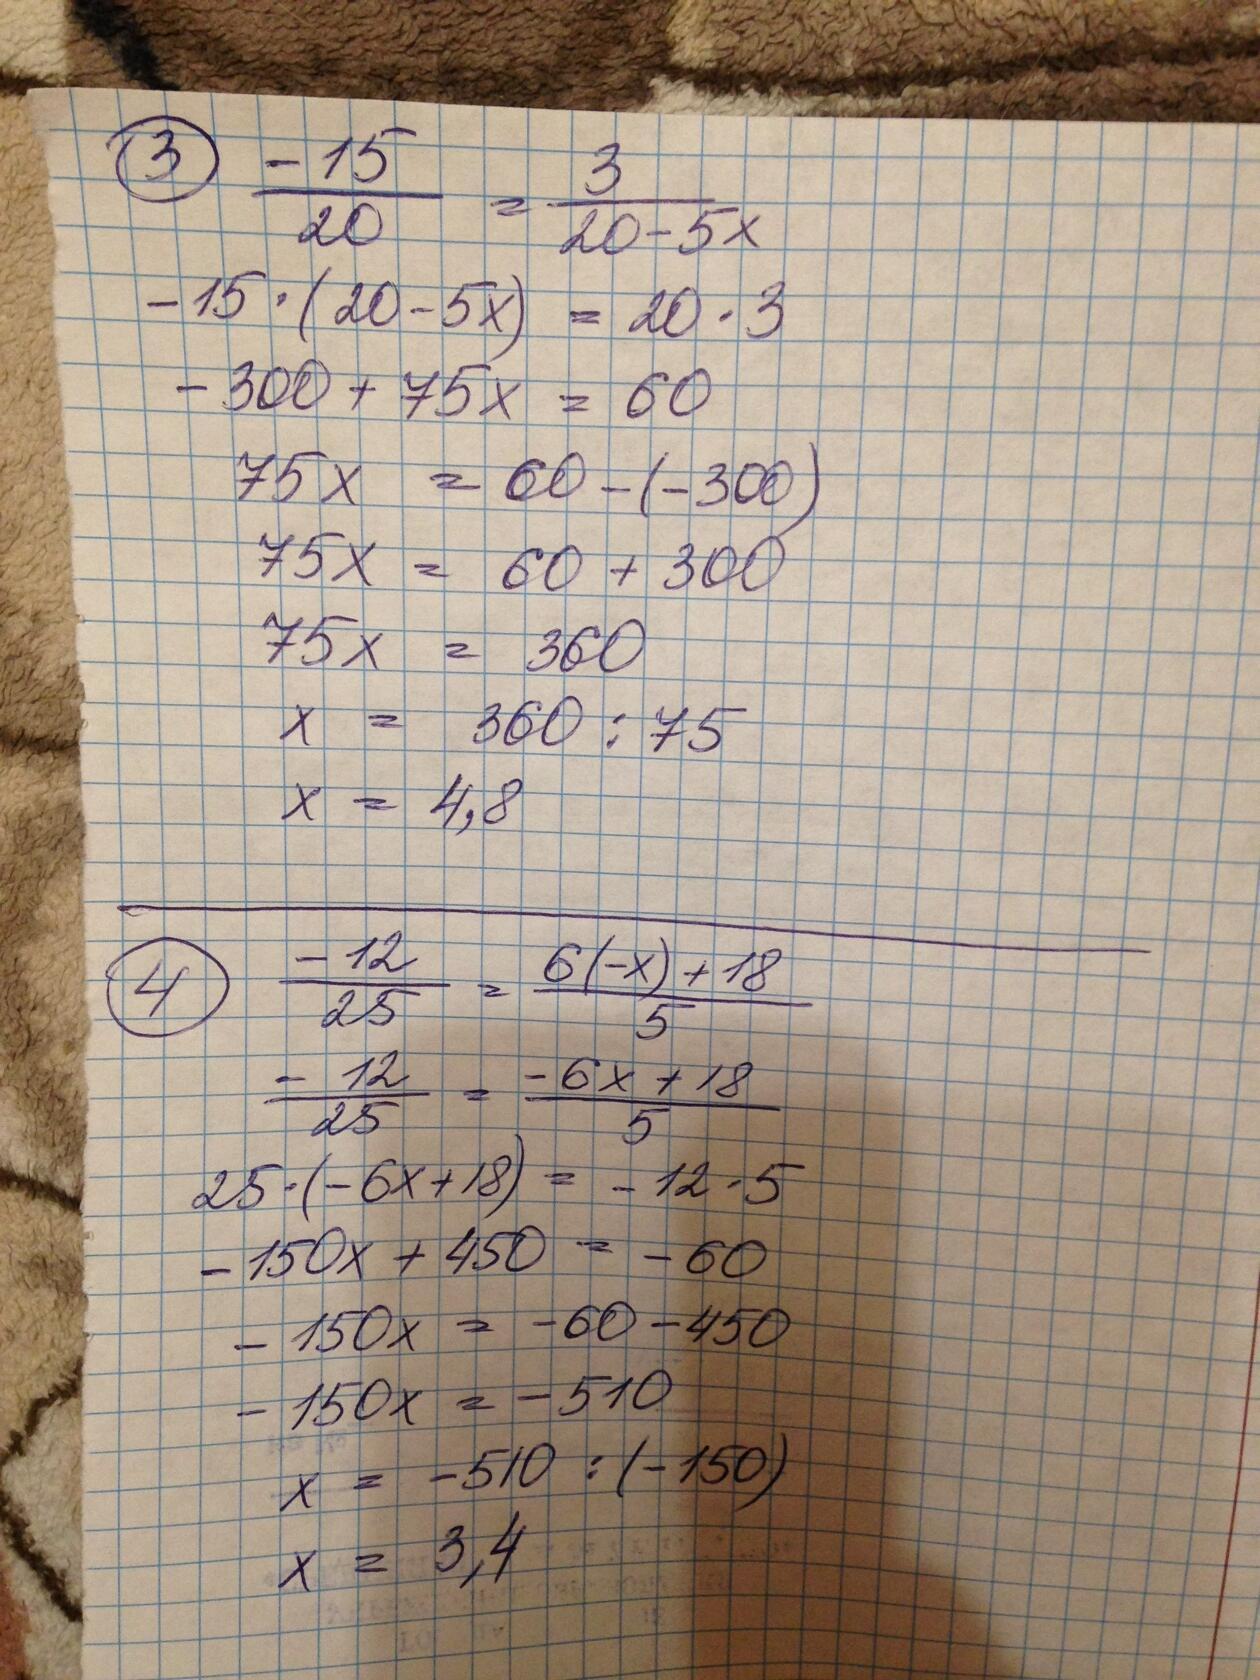 3 -15/20 = 3/20-5x
-15·(20-5x) = 20·3
-300+75x = 60
75x = 60-(-300)
75x = 60+300
75x = 360
x = 360:75
x = 4,8
4 -12/25 = 6(-x)+18/5
-12/25 = -6x+18/5
25·(-6x+18) = -12·5
-150x+450 = -60
-150x = -60-450
-150x = -510
x = -510:(-150)
x = 3,4